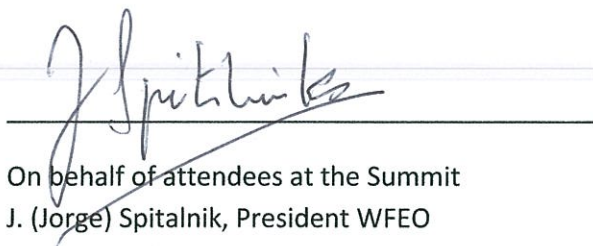 J Spitalnik
On behalf of attendees at the Summit
J. (Jorge) Spitalnik, President WFEO